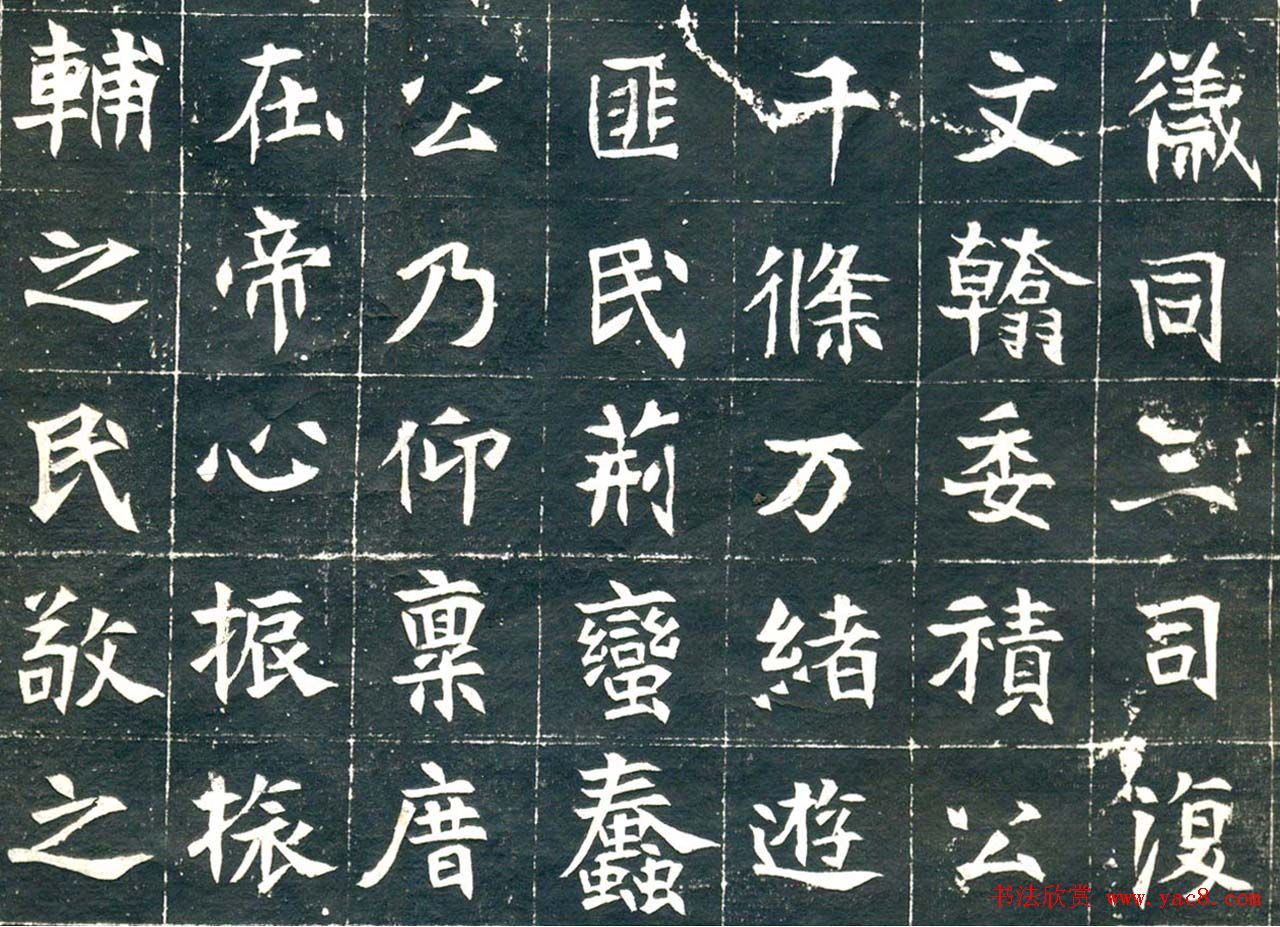 儀同三司復
文翰委積公
千條万緒遊
匪民荊蠻蠢
公乃仰稟庴
在帝心振振
輔之民敬之
书法欣赏 www.yac8.com